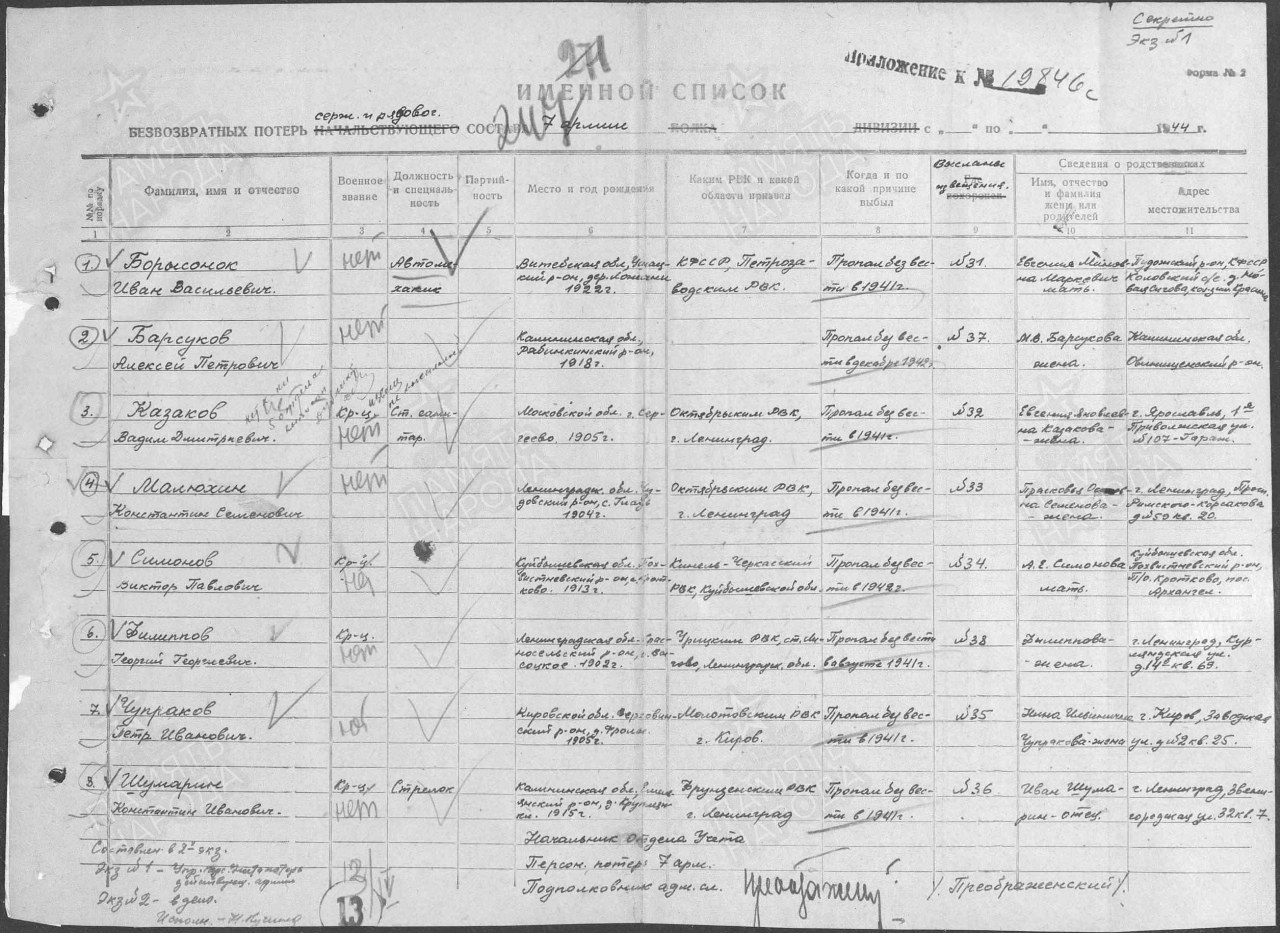 Секретно
Экз №1
271
Приложение к № 19846с
Форма № 2
ИМЕННОЙ СПИСОК
серж. и рядовог.
БЕЗВОЗВРАТНЫХ ПОТЕРЬ НАЧАЛЬСТВУЮЩЕГО СОСТАВА 7 армии ПОЛКА ДИВИЗИИ с „ “ по „ “ 1944 г.
№№ по порядку
Фамилия, имя и отчество
Военное звание
Должность и специальность
Партийность
Место и год рождения
Каким РВК и какой области призван
Когда и по какой причине выбыл
Высланы извещения.
Сведения о родственниках
Имя, отчество и фамилия жены или родителей
Адрес местожительства
1 2 3 4 5 6 7 8 9 10 11
1. Борысонок
Иван Васильевич.
нет
Автомеханик
Витебская обл, Ушацкий р-он, дер.
1922г.
КФССР, Петрозаводским РВК.
Пропал без вести в 1941г.
№31.
Евгения
на Маркевич
мать.
Пудожский р-он, КФССР
2 Барсуков
Алексей Петрович
нет
Калининская обл,
Рябинкинский р-он,
1918г.
Пропал без вести в декабре 1942г.
№37.
М.В. Барсукова
жена.
Калининская обл,
Овинищенский р-он.
3. Казаков
Вадим Дмитриевич.
Кр-ц
нет
Ст. санитар.
Московской обл. г. Сергеево, 1905г.
Октябрьским РВК,
г. Ленинград.
Пропал без вести в 1941г.
№32
Евгения Яковлевна Казакова-
-жена.
г. Ярославль, 1я
Приволжская ул.
№107-Гараж.
4 Малюхин
Константин Семенович
нет
Ленинградск. обл. Чудовский р-он, с.
1904г.
Октябрьским РВК,
г. Ленинград
Пропал без вести в 1941г.
№33
на Семенова-
-жена.
г. Ленинград, Просп.
Римского-Корсакова
д.№50 кв. 20.
5. Симонов
Виктор Павлович
Кр-ц
Куйбышевская обл. Похвистневский р-он, с. Кротково. 1913г.
Кинель-Черкасский
РВК, Куйбышевской обл.
Пропал без вести в 1942г.
№34.
А.Е. Симонова
мать.
Куйбышевская обл.
Похвистневский р-он,
П/о. Кротково, пос.
Архангел.
6. Филиппов
Георгий Георгиевич.
Кр-ц.
нет
Ленинградская обл. Красносельский р-он,
1902г.
Урицким РВК, ст. Лигово, Ленинградск. обл.
Пропал без вести
в августе 1941г.
№38
Филиппова-
-жена.
г. Ленинград, Курляндская ул.
д.14а кв. 69.
7. Чупраков
Петр Иванович.
Кировской обл.
1905г.
Молотовским РВК
г. Киров.
Пропал без вести в 1941г.
№35
Нина Ильинична
Чупракова-жена
г. Киров, Заводская
ул. д №2 кв. 25.
8. Шумарин
Константин Иванович.
Кр-ц
нет
Стрелок
Калининская обл.
1915г.
Фрунзенским РВК
г. Ленинград
Пропал без вести в 1941г.
№36
Иван Шумарин-отец.
г. Ленинград, Звенигородская ул. 32 кв. 7.
Составлен в 2х экз.
Экз №1 –
действующ. армии
Экз №2 – в дело.
Исполн. –
12
13
Начальник отдела учета
Персон, потерь 7 арм.
Подполковник адм. сл.
/Преображенский/.